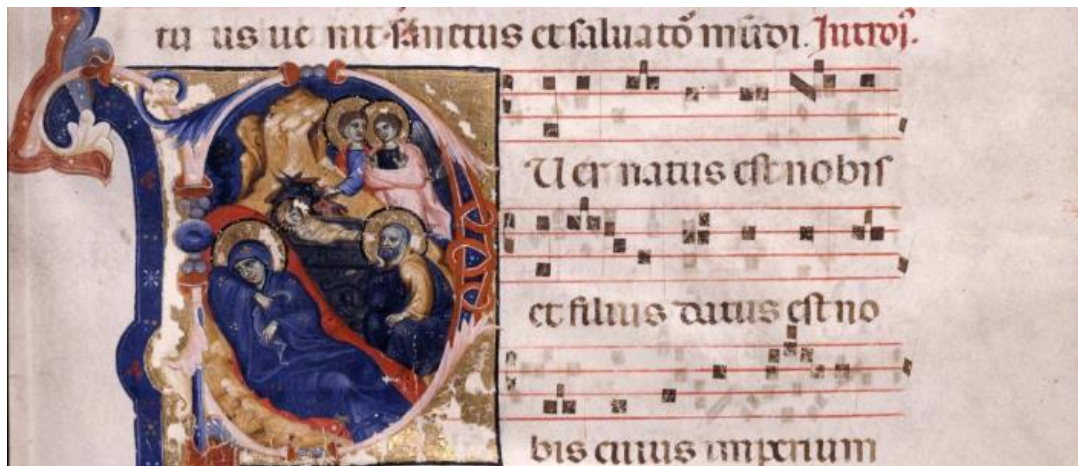 tu us ue nit sanctus et saluatõ mũdi. Introi.
U er natus est nobis
et filius datus est no
bis cuius imperium